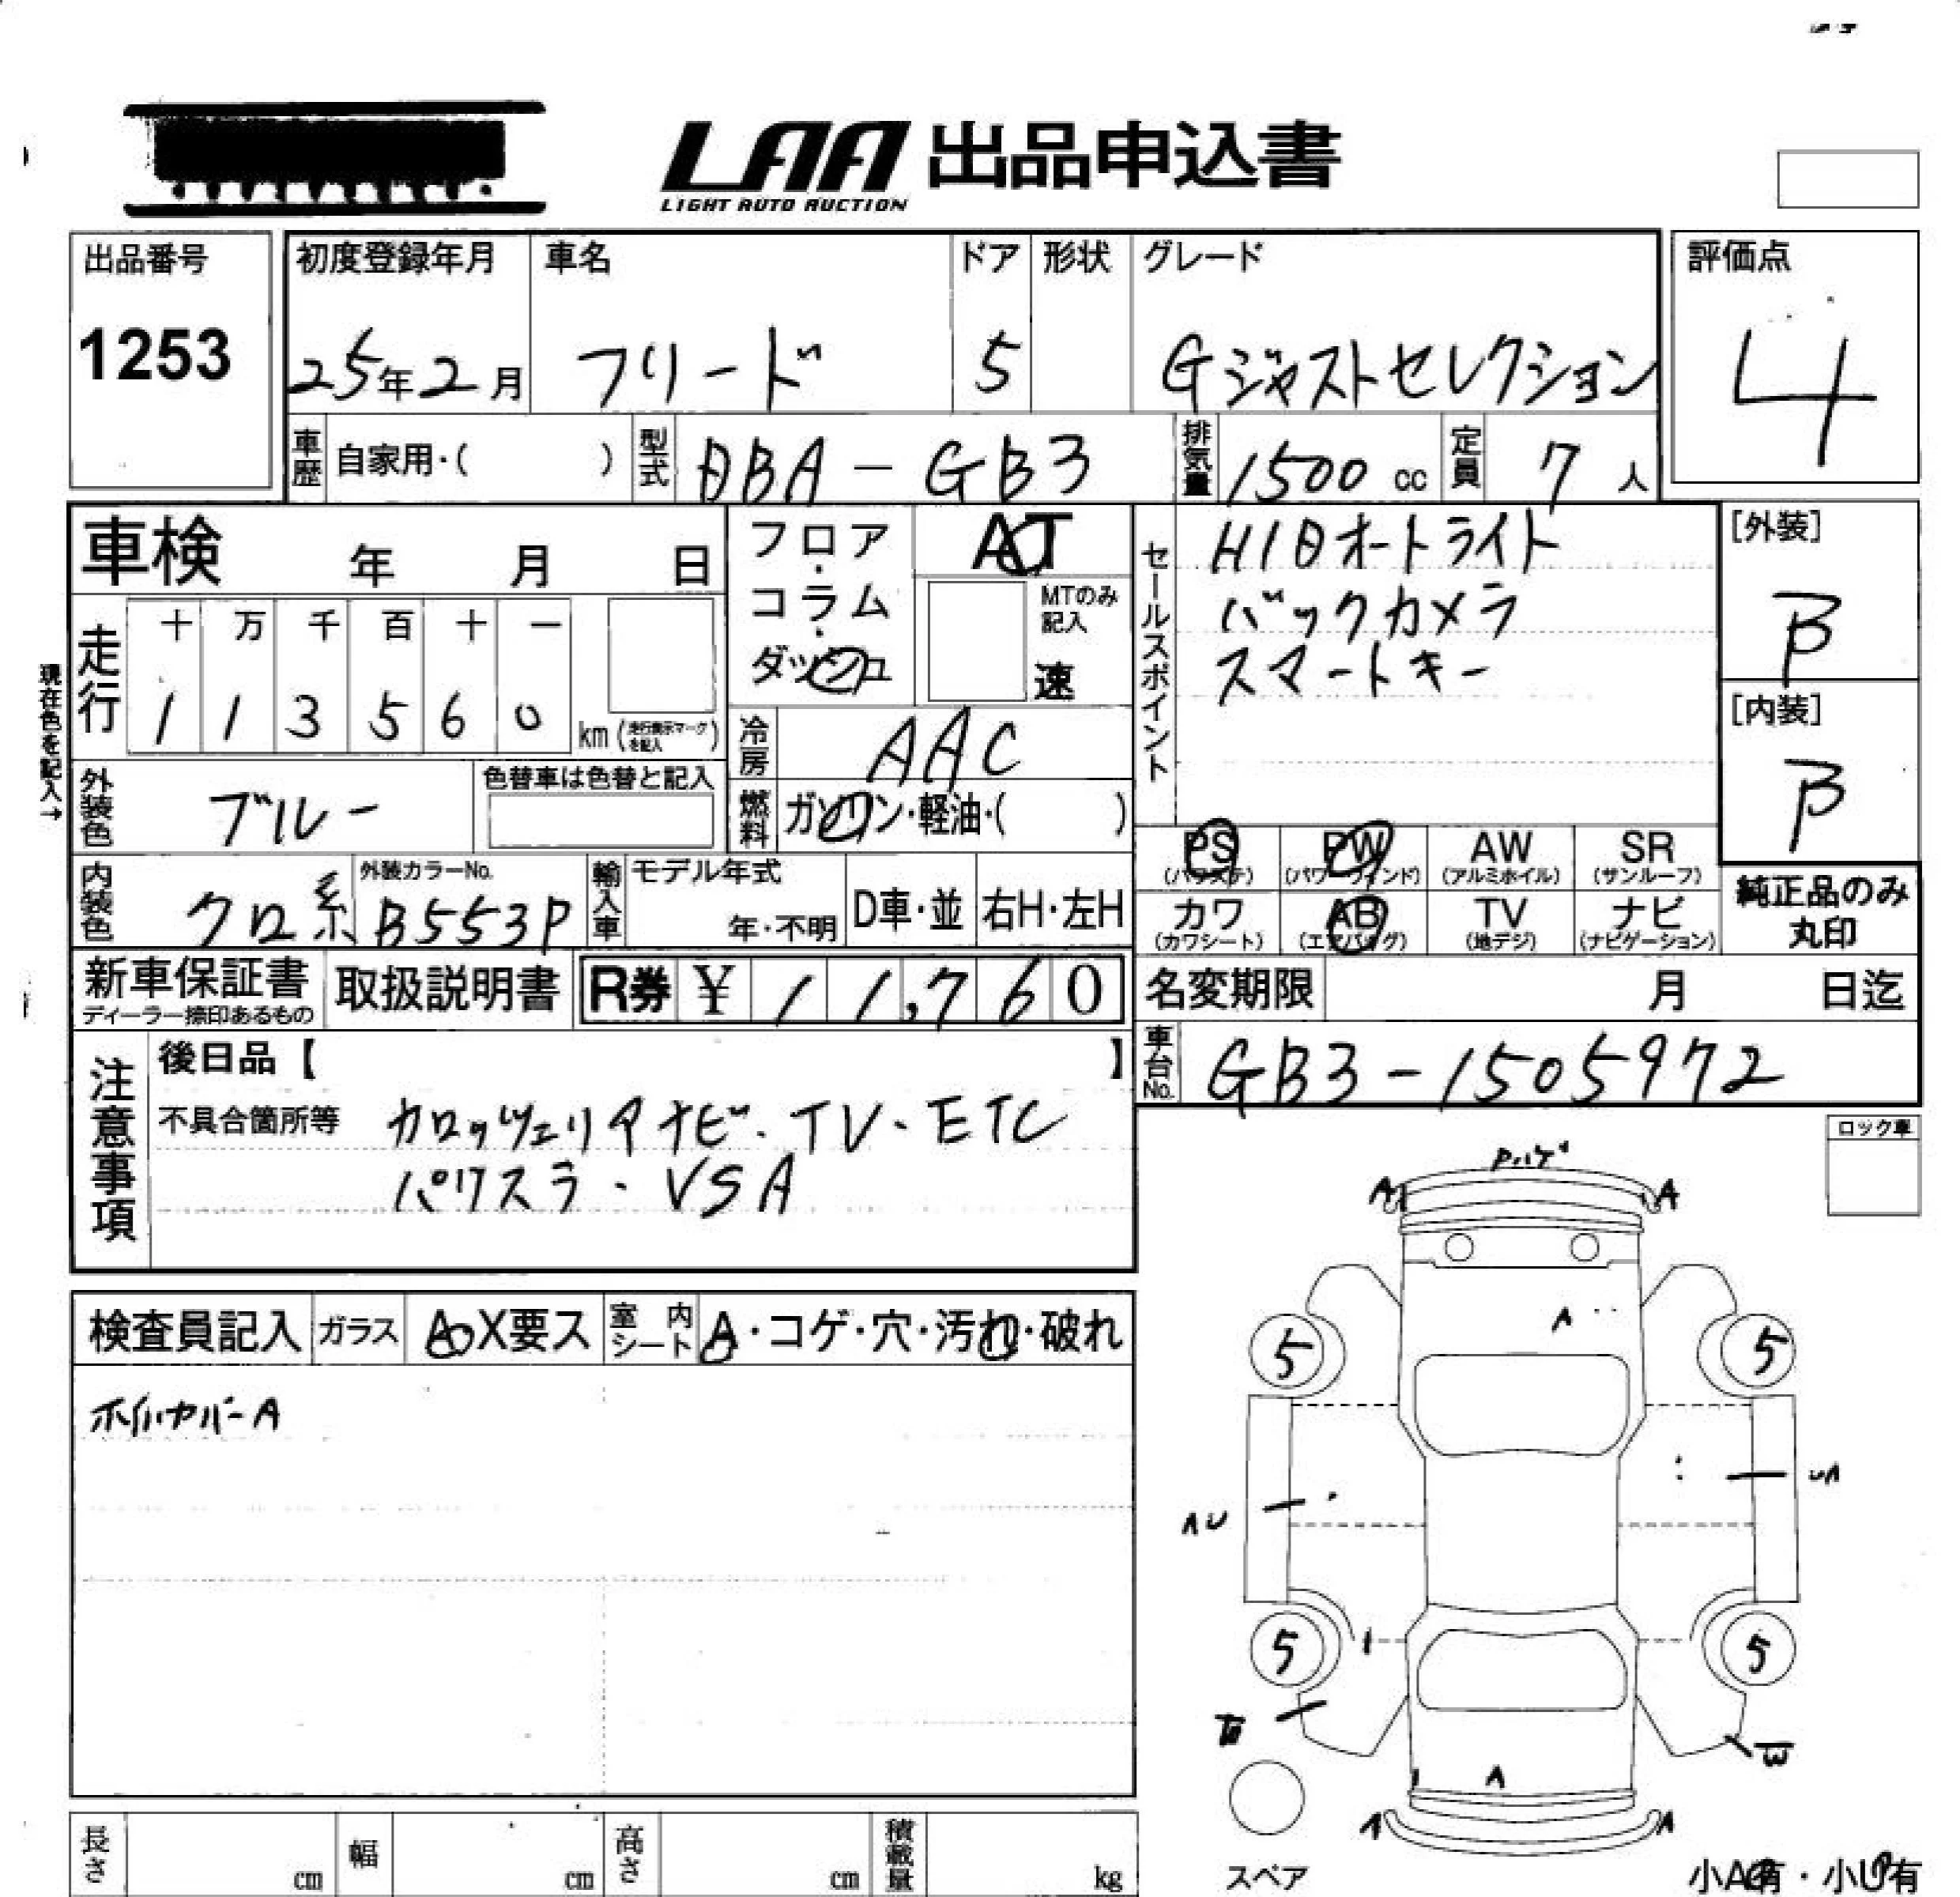 LAA 出品申込書
LIGHT AUTO AUCTION
出品番号 初度登録年月 車名 ドア 形状 グレード 評価点
1253 25年2月 フリード 5 Gジャストセレクション 4
車歴 自家用・( ) 型式 DBA-GB3 排気量 1500 cc 定員 7 人
車検 年 月 日 フロア・コラム・ダッシュ AT
MTのみ記入 速
セールスポイント
HIDオートライト
バックカメラ
スマートキー
[外装]
B
[内装]
B
現在色を記入→
走行 十 万 千 百 十 一
1 1 3 5 6 0 km (走行表示マークを記入)
冷房 AAC
外装色 ブルー 色替車は色替と記入 燃料 ガソリン・軽油・( )
PS (パワステ) PW (パワーウィンド) AW (アルミホイル) SR (サンルーフ)
カワ (カワシート) AB (エアバッグ) TV (地デジ) ナビ (ナビゲーション)
純正品のみ丸印
内装色 クロ系 外装カラーNo. B553P 輸入車 モデル年式 年・不明 D車・並 右H・左H
新車保証書 ディーラー捺印あるもの 取扱説明書 R券 ¥ 11,760 名変期限 月 日迄
車台No. GB3-1505972
注意事項 後日品【 】
不具合箇所等 カロッツェリアナビ・TV・ETC
パワスラ・VSA
ロック車
検査員記入 ガラス A・X要ス 室内シート A・コゲ・穴・汚れ・破れ
ホイルカバーA
Pハゲ
A A
A
5 5
AU UA
5 5
A
A A
スペア
長さ cm 幅 cm 高さ cm 積載量 kg
小A有・小U有